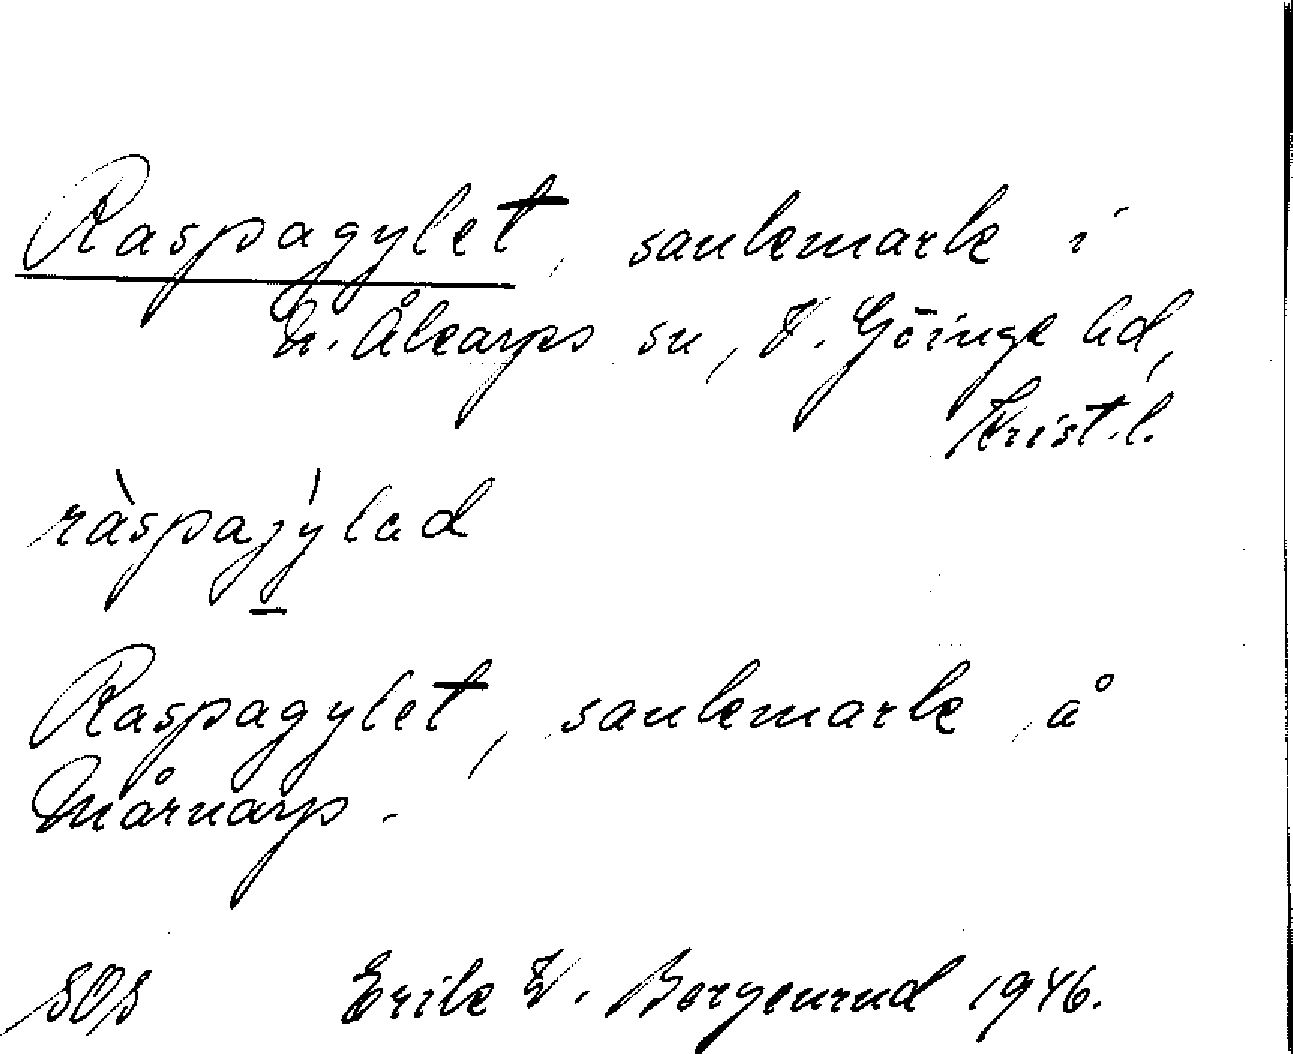 Raspagylet, sankmark i
N. Åkarps sn, V. Göinge hd,
Krist. l.
ràspajýlad
Raspagylet, sankmark å
Mårnarp.
SOS Erik W. Borgenrud 1946.